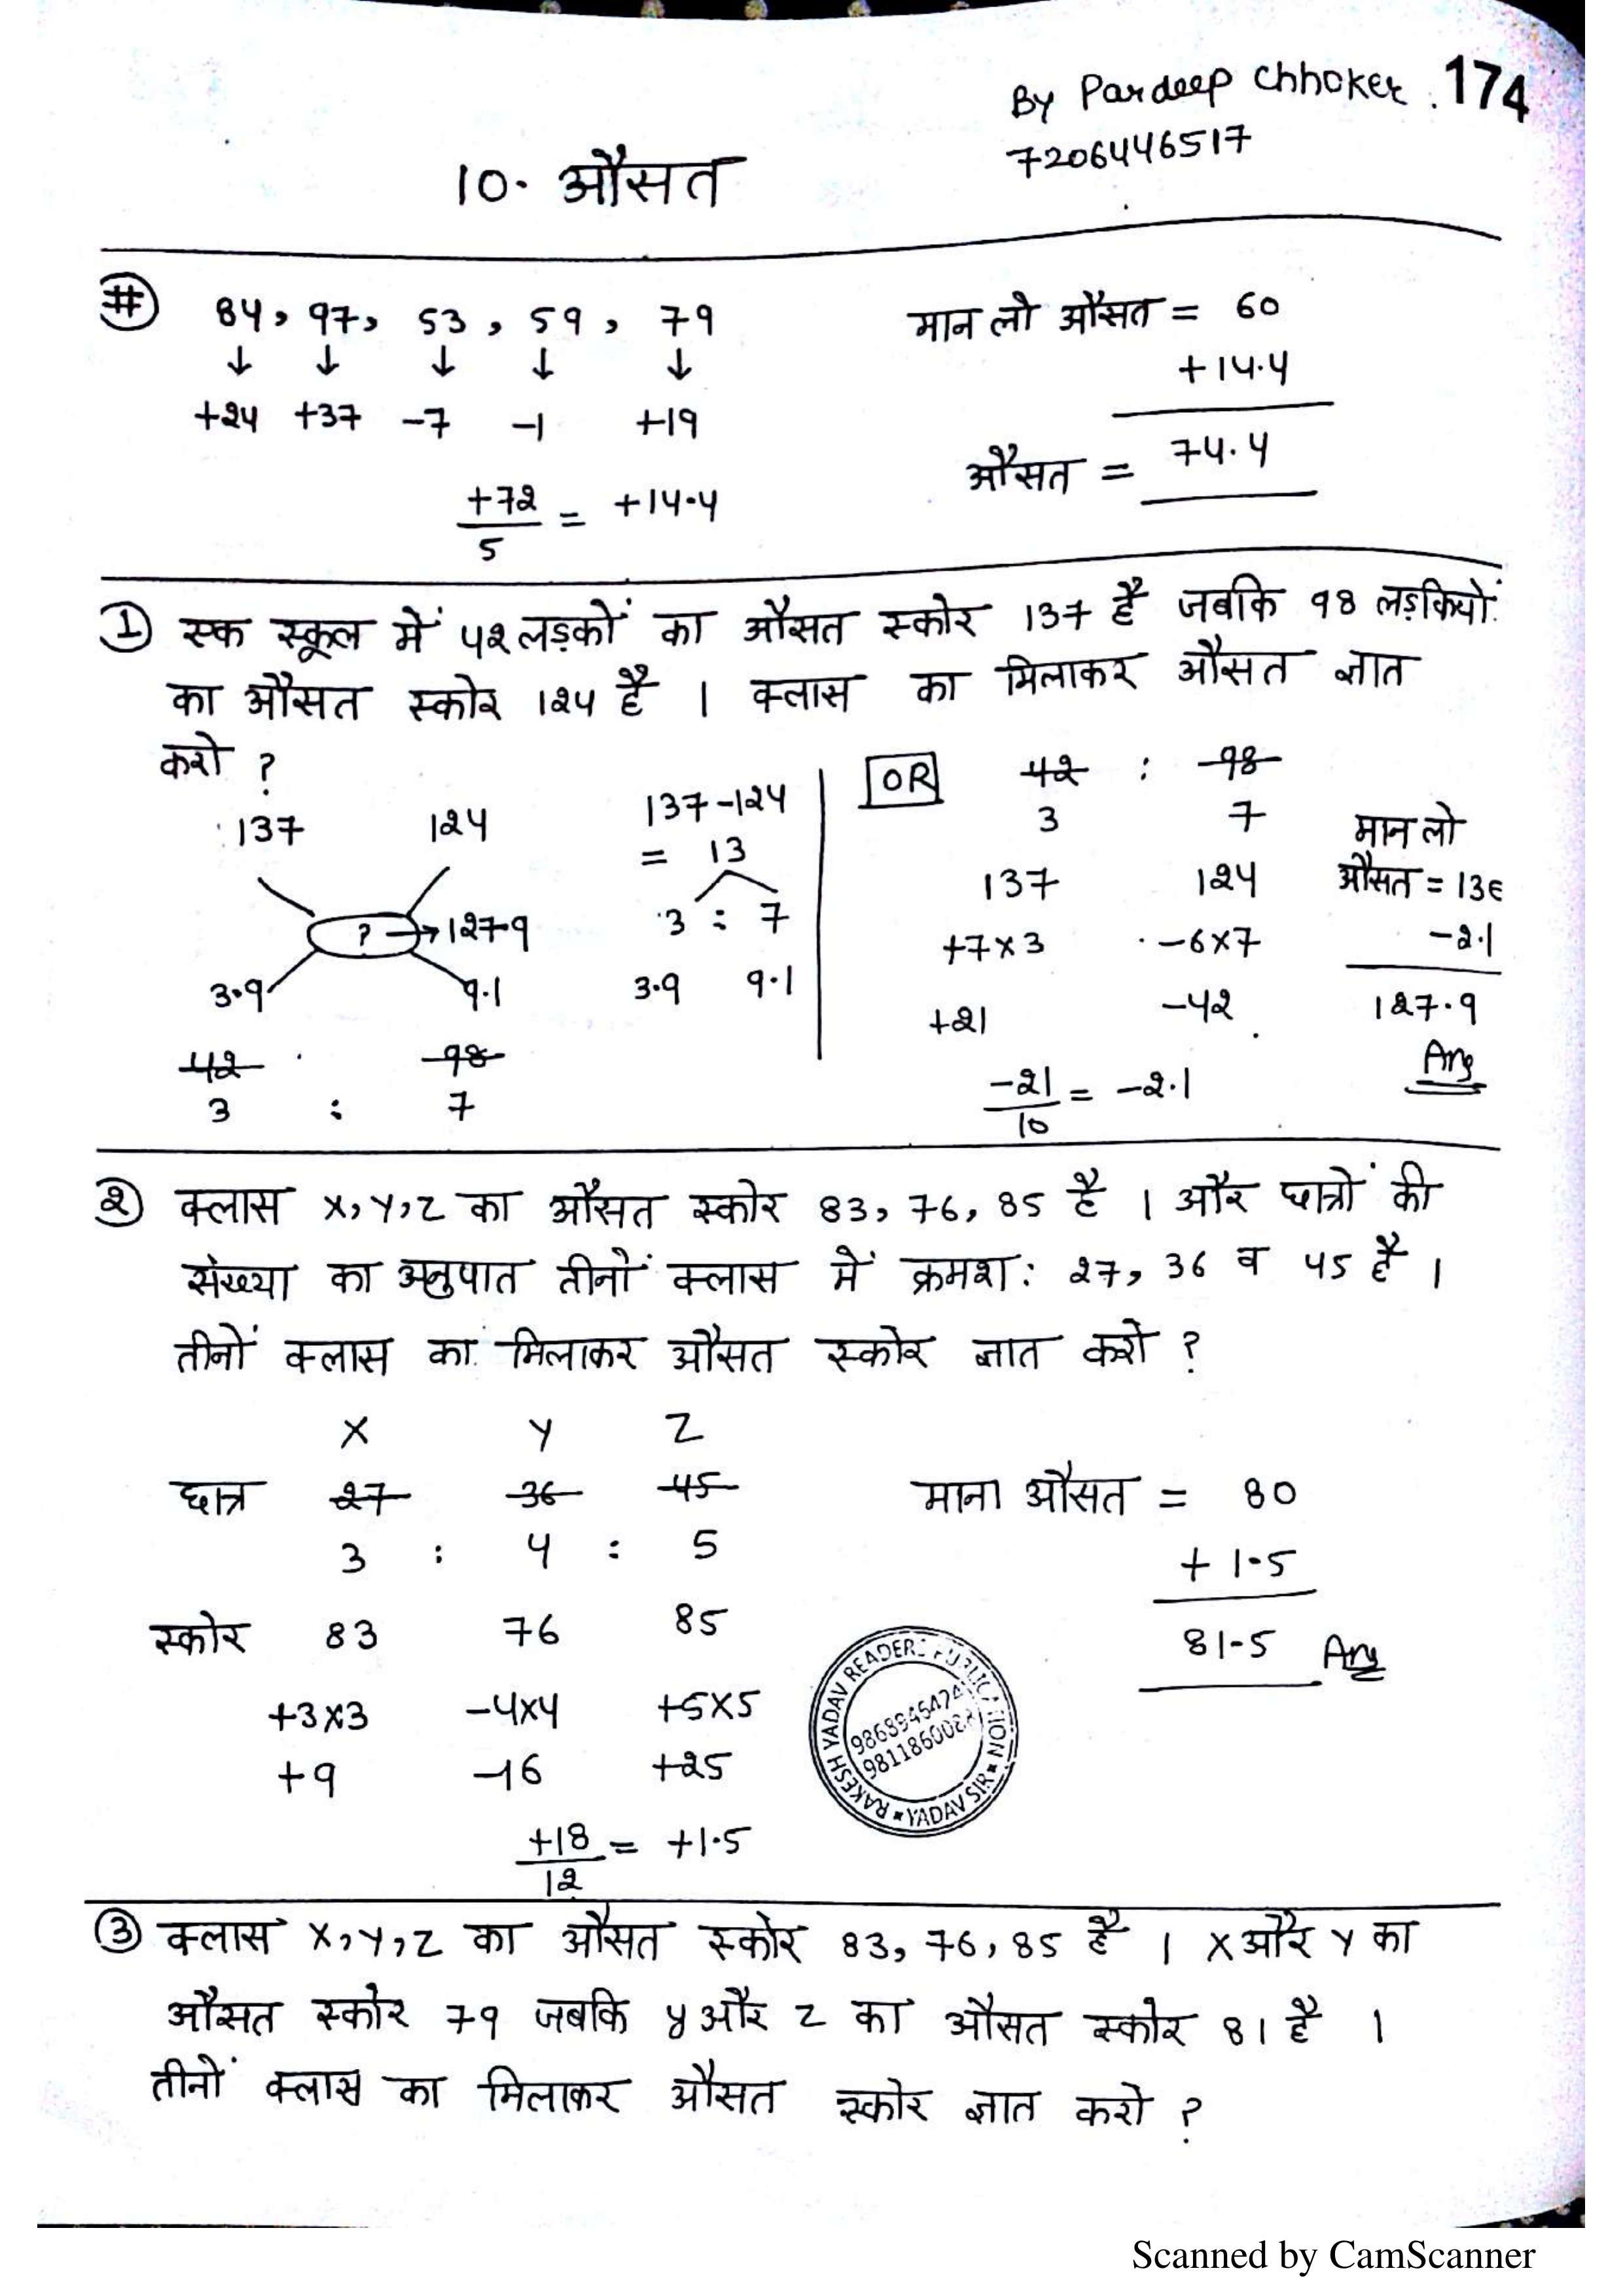 By Pardeep Chhoker. 174
7206446517
10. औसत
# 84, 97, 53, 59, 79
↓ ↓ ↓ ↓ ↓
+24 +37 -7 -1 +19
+72/5 = +14.4
मान लो औसत = 60
+14.4
औसत = 74.4
① एक स्कूल में 42 लड़कों का औसत स्कोर 137 है जबकि 98 लड़कियों
का औसत स्कोर 124 है । क्लास का मिलाकर औसत ज्ञात
करो ?
137 124
? → 127.9
3.9 9.1
42 98
3 : 7
137-124
= 13
3 : 7
3.9 9.1
OR 42 : 98
3 7
137 124
+7×3 -6×7
+21 -42
-21/10 = -2.1
मान लो
औसत = 13
-2.1
127.9
Ans
② क्लास X, Y, Z का औसत स्कोर 83, 76, 85 है । और छात्रों की
संख्या का अनुपात तीनों क्लास में क्रमश: 27, 36 व 45 है ।
तीनों क्लास का मिलाकर औसत स्कोर ज्ञात करो ?
X Y Z
छात्र 27 36 45
3 : 4 : 5
स्कोर 83 76 85
+3×3 -4×4 +5×5
+9 -16 +25
+18/12 = +1.5
माना औसत = 80
+ 1.5
81.5 Ans
RAKESH YADAV READERS PUBLICATION
YADAV SIR
③ क्लास X, Y, Z का औसत स्कोर 83, 76, 85 है । X और Y का
औसत स्कोर 79 जबकि y और z का औसत स्कोर 81 है ।
तीनों क्लास का मिलाकर औसत स्कोर ज्ञात करो ?
Scanned by CamScanner